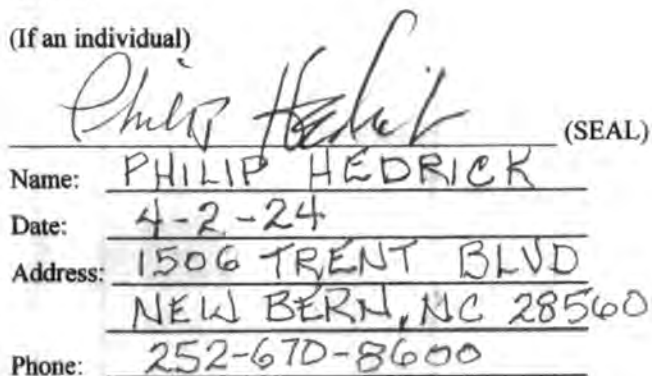 (If an individual)
Philip Hedrick (SEAL)
Name: PHILIP HEDRICK
Date: 4-2-24
Address: 1506 TRENT BLVD
NEW BERN, NC 28560
Phone: 252-670-8600